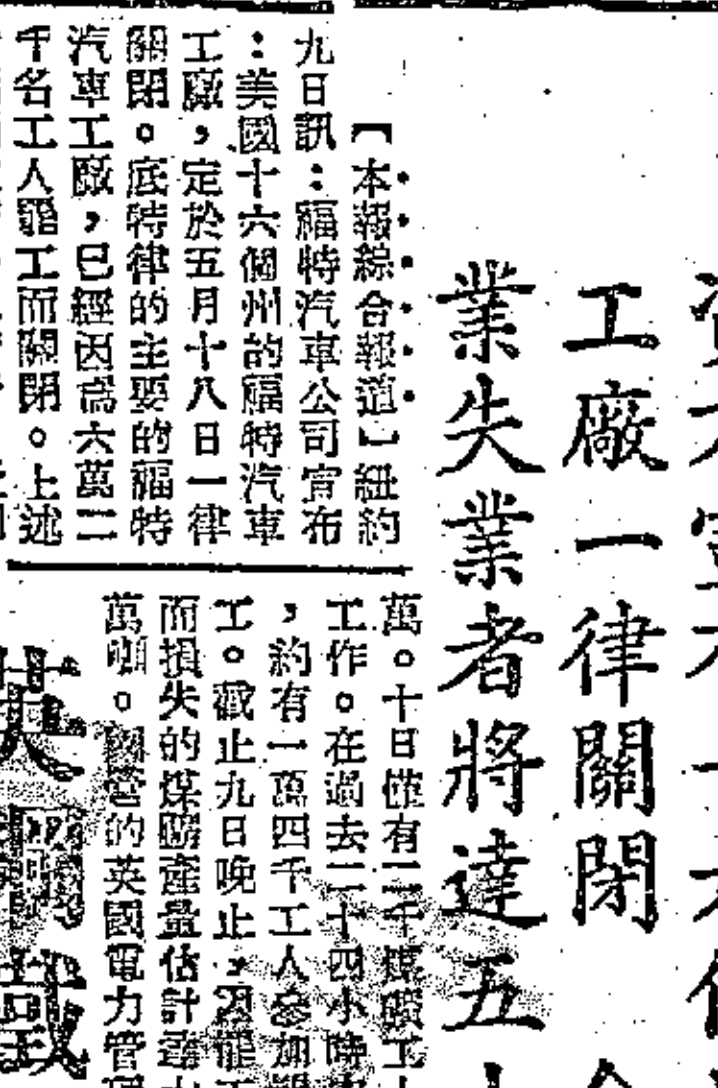 工廠一律關閉
業失業者將達五
【本報綜合報道】紐約
九日訊：福特汽車公司宣布
：美國十六個州的福特汽車
工廠，定於五月十八日一律
關閉。底特律的主要的福特
汽車工廠，已經因爲六萬二
千名工人罷工而關閉。上述
萬。十日僅有二千煤礦工
工作。在過去二十四小時
，約有一萬四千工人參加
工。截止九日晚止，因罷工
而損失的煤礦產量估計達
萬噸。國營的英國電力管
英國